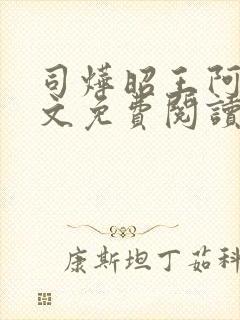 司燁昭王阿
文免費閱讀
康斯坦丁茹科